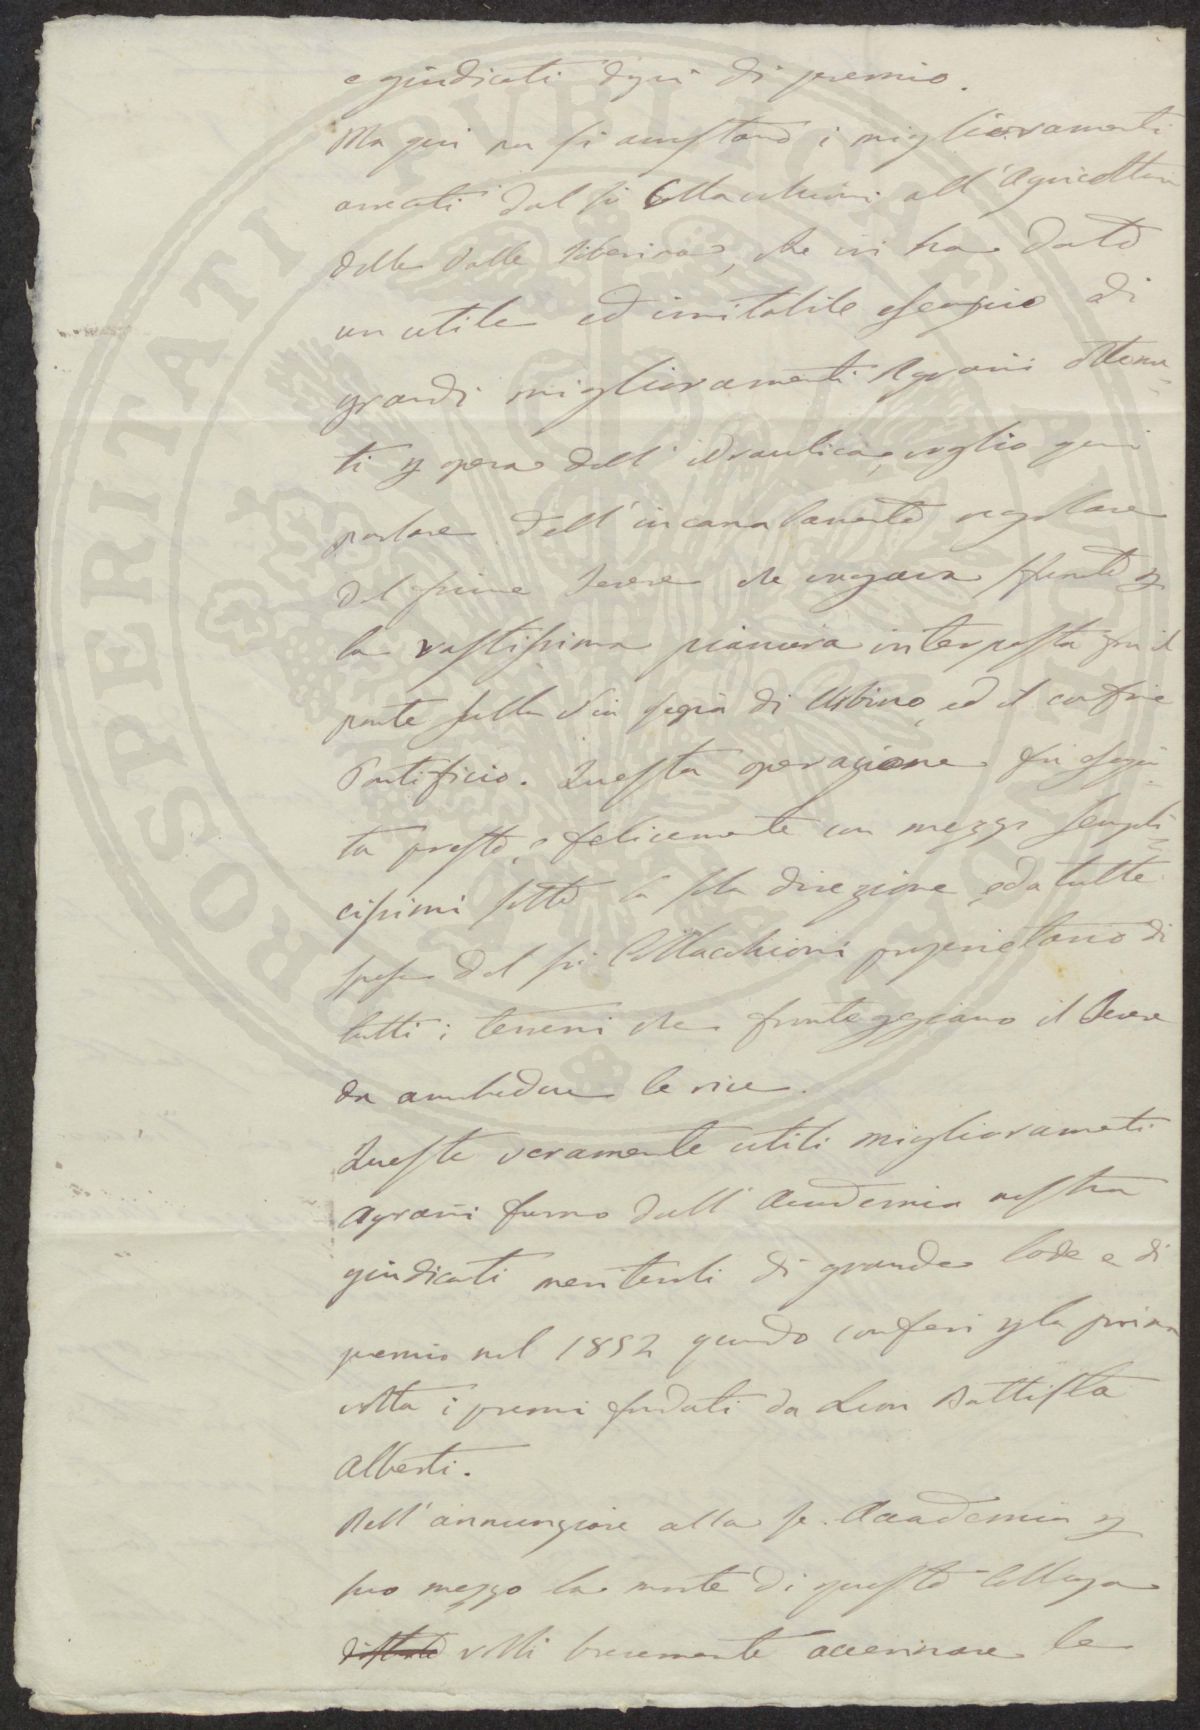 e giudicati degni di premio.
Ma qui non si arrestano i miglioramenti
arrecati dal Sig. Collacchioni all'Agricoltura
della Valle Tiberina, che ivi ha dato
un utile ed imitabile esempio di
grandi miglioramenti Agrarii ottenu=
ti per opera dell'idraulica, voglio qui
parlare dell'incanalamento regolare
del fiume Tevere che vagava sfrenato per
la vastissima pianura interposta fra il
ponte sulla Via Regia di Urbino, ed il confine
Pontificio. Questa operazione fu esegui=
ta presto, e felicemente con mezzi sempli=
cissimi sotto la sola direzione, ed a tutte
spese del Sig. Collacchioni proprietario di
tutti i terreni che fronteggiano il Tevere
da ambedue le rive.
Queste veramente utili miglioramenti
Agrarii furno dall'Accademia nostra
giudicati meritevoli di grande lode e di
premio nel 1852 quando conferì per la prima
volta i premi fondati da Leon Battista
Alberti.
Nell'annunziare alla Accademia per
suo mezzo la morte di questo Collega
volli brevemente accennare le
PROSPERITATI PVBLICAE AVGENDAE